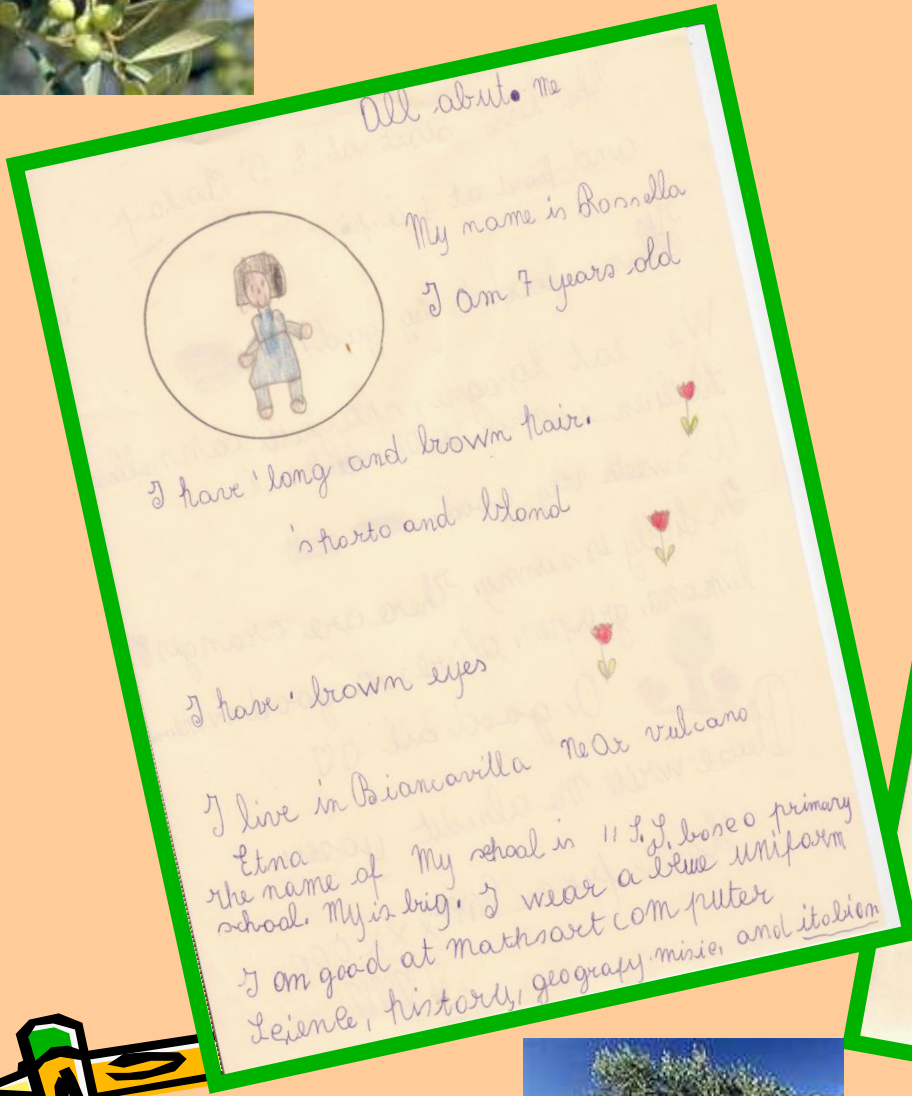 All abut. me
My name is Rossella
I am 7 years old
I have long and brown hair.
shorto and blond
I have brown eyes
I live in Biancavilla neOr vulcano
Etna
rhe name of My school is " S.G. bosco primary
school. My is big. I wear a blue uniform
I am good at mathsart com puter
Science, history, geografy. misic, and itolion